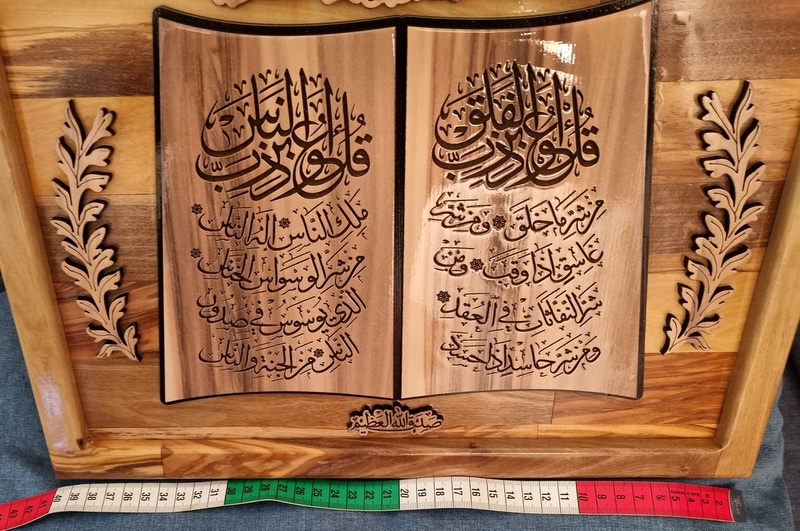 قل أعوذ برب الفلق
من شر ما خلق ۞ ومن شر
غاسق اذا وقب ۞ ومن
شر النفاثات في العقد ۞
ومن شر حاسد اذا حسد
قل أعوذ برب الناس
ملك الناس ۞ اله الناس ۞
من شر الوسواس الخناس ۞
الذي يوسوس في صدور
الناس ۞ من الجنة والناس
صدق الله العظيم
43 42 41 40 39 38 37 36 35 34 33 32 31 30 29 28 27 26 25 24 23 22 21 20 19 18 17 16 15 14 13 12 11 10 9 8 7 6 5 4 3 2